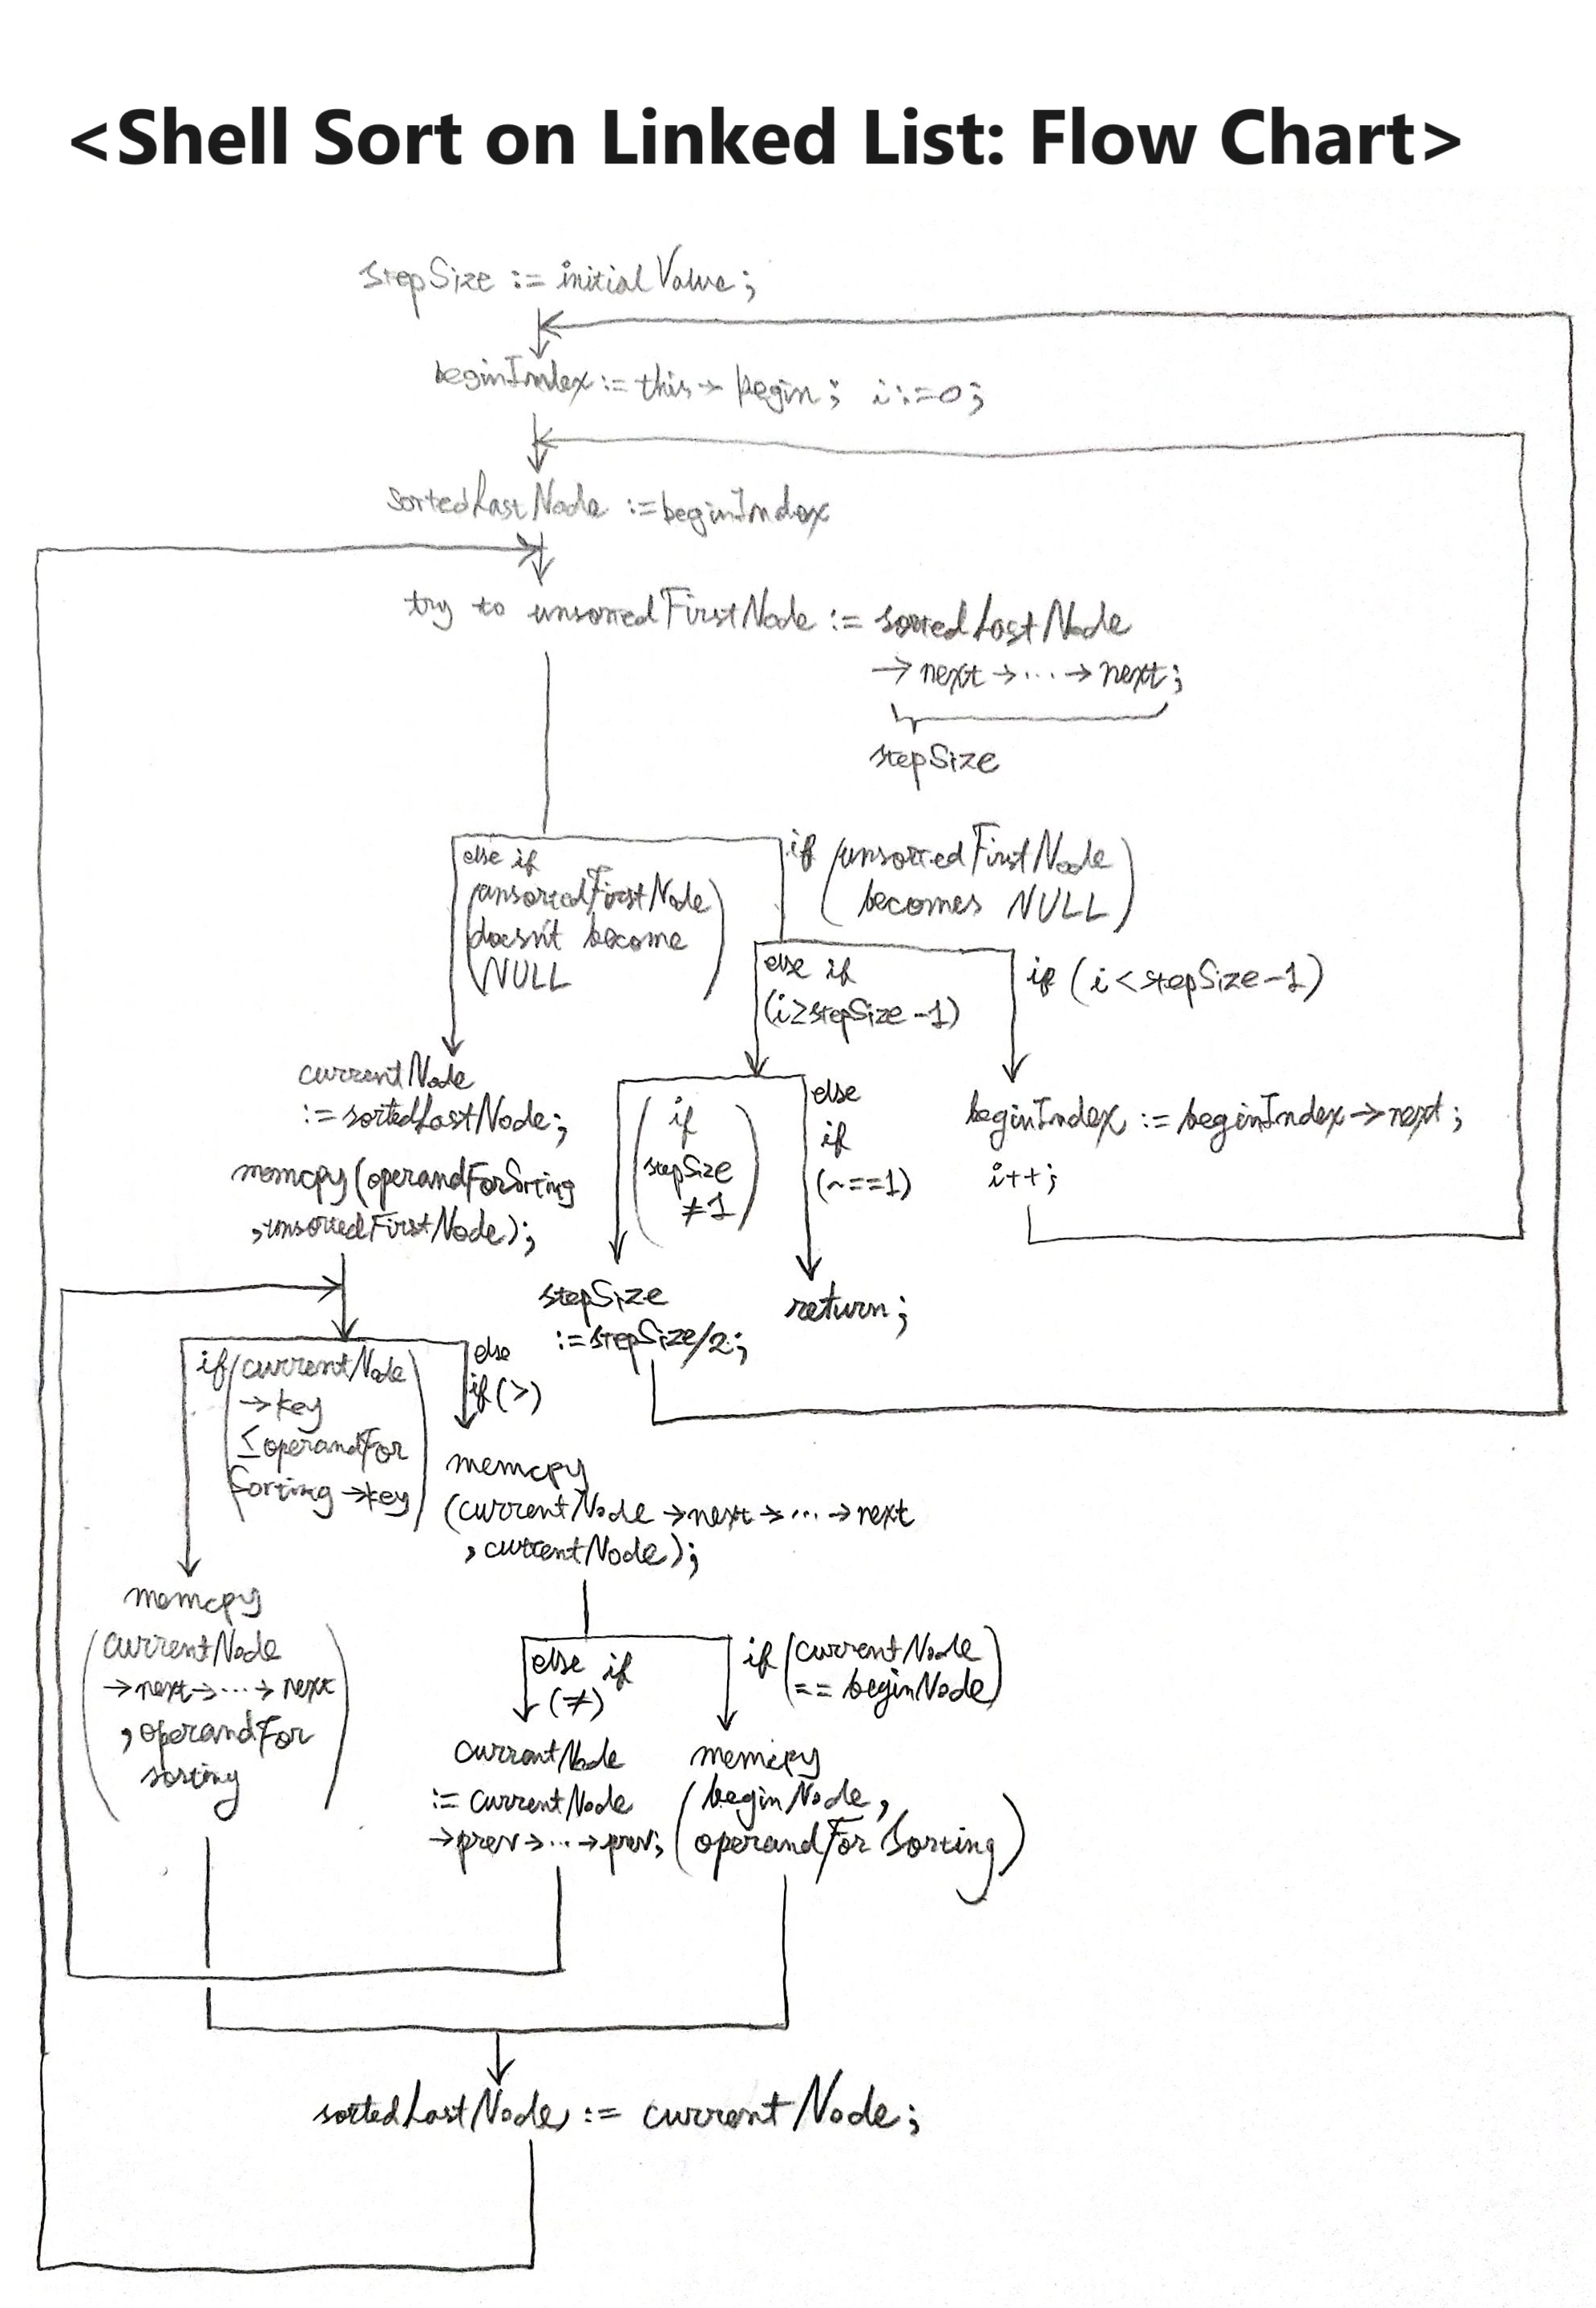 <Shell Sort on Linked List: Flow Chart>
stepSize := initialValue;
beginIndex := this→begin; i:=0;
sortedLastNode :=beginIndex
try to unsortedFirstNode := sortedLastNode
→next→···→next;
stepSize
else if
(unsortedFirstNode
doesn't become
NULL)
if (unsortedFirstNode
becomes NULL)
else if
(i≥stepSize-1)
if (i<stepSize-1)
currentNode
:=sortedLastNode;
memcpy(operandForSorting
,unsortedFirstNode);
(if
stepSize
≠1)
else
if
(~==1)
beginIndex := beginIndex→next;
i++;
stepSize
:=stepSize/2;
return;
if(currentNode
→key
≤operandFor
Sorting→key)
else
if(>)
memcpy
(currentNode→next→···→next
,currentNode);
memcpy
(currentNode
→next→···→next
,operandFor
sorting)
else if
(≠)
if (currentNode
==beginNode)
currentNode
:= currentNode
→prev→···→prev;
memcpy
(beginNode,
operandForSorting)
sortedLastNode := currentNode;